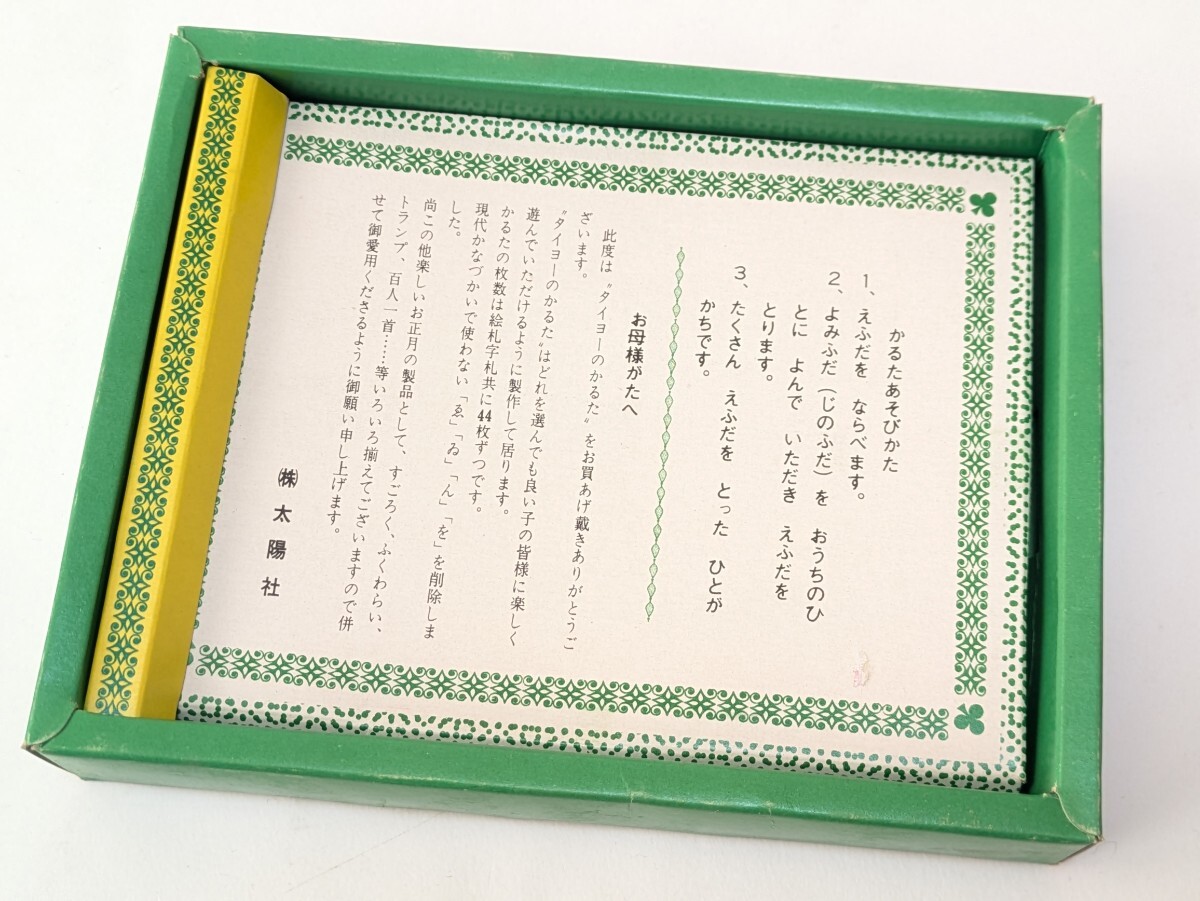 かるたあそびかた
1、えふだを ならべます。
2、よみふだ(じのふだ)を おうちのひ
とに よんで いただき えふだを
とります。
3、たくさん えふだを とった ひとが
かちです。
お母様がたへ
此度は〝タイヨーのかるた〟をお買あげ戴きありがとうご
ざいます。
〝タイヨーのかるた〟はどれを選んでも良い子の皆様に楽しく
遊んでいただけるように製作して居ります。
かるたの枚数は絵札字札共に44枚ずつです。
現代かなづかいで使わない「ゑ」「ゐ」「ん」「を」を削除しま
した。
尚この他楽しいお正月の製品として、すごろく、ふくわらい、
トランプ、百人一首……等いろいろ揃えてございますので併
せて御愛用くださるように御願い申し上げます。
㈱太陽社